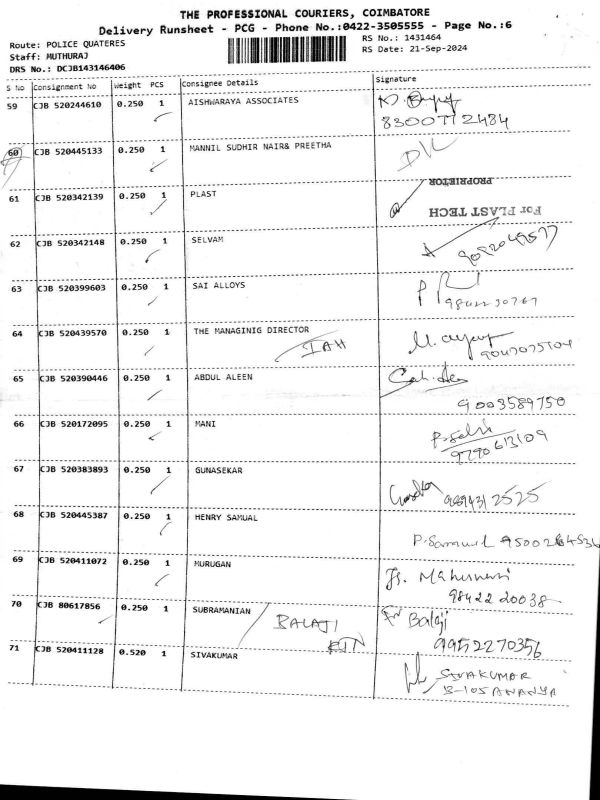 THE PROFESSIONAL COURIERS, COIMBATORE
Delivery Runsheet - PCG - Phone No.:0422-3505555 - Page No.:6
Route: POLICE QUATERES
RS No.: 1431464
Staff: MUTHURAJ
RS Date: 21-Sep-2024
DRS No.: DCJB143146406
S No Consignment No Weight PCS Consignee Details Signature
59 CJB 520244610 0.250 1 AISHWARAYA ASSOCIATES
60 CJB 520445133 0.250 1 MANNIL SUDHIR NAIR& PREETHA
PROPRIETOR
61 CJB 520342139 0.250 1 PLAST
For PLAST TECH
62 CJB 520342148 0.250 1 SELVAM
63 CJB 520399603 0.250 1 SAI ALLOYS
64 CJB 520439570 0.250 1 THE MANAGINIG DIRECTOR
65 CJB 520390446 0.250 1 ABDUL ALEEN
9003589750
66 CJB 520172095 0.250 1 MANI
9790613109
67 CJB 520383893 0.250 1 GUNASEKAR
68 CJB 520445387 0.250 1 HENRY SAMUAL
69 CJB 520411072 0.250 1 MURUGAN
98422 20038
70 CJB 80617856 0.250 1 SUBRAMANIAN
BALAJI
Balaji
9952270356
71 CJB 520411128 0.520 1 SIVAKUMAR
SIVAKUMAR
B-105 ANANYA